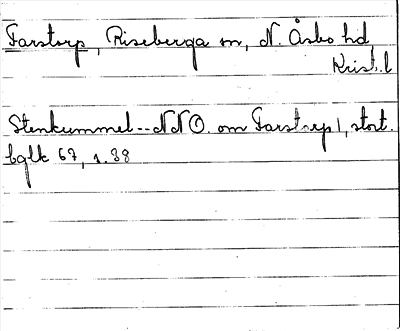 Farstorp, Riseberga sn, N. Åsbo hd
Krist. l
Stenkummel -- NNO. om Farstorp 1, stort.
bglk 67, s. 38